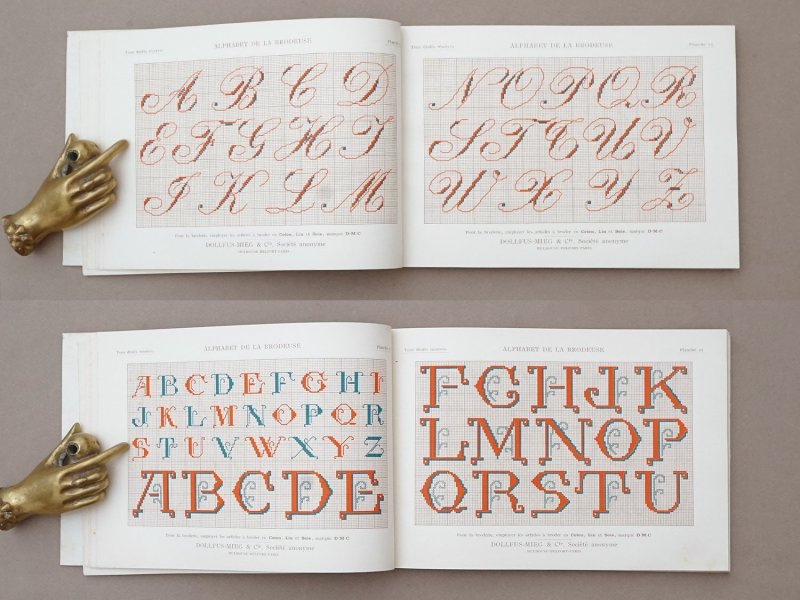 Tous droits réservés.
ALPHABET DE LA BRODEUSE
Planche
A B C D
E F G H I
J K L M
Pour la broderie, employer les articles à broder en Coton, Lin et Soie, marque D·M·C
DOLLFUS-MIEG & Cie, Société anonyme
MULHOUSE-BELFORT-PARIS
Tous droits réservés.
ALPHABET DE LA BRODEUSE
Planche
N O P Q R
S T U V
W X Y Z
Pour la broderie, employer les articles à broder en Coton, Lin et Soie, marque D·M·C
DOLLFUS-MIEG & Cie, Société anonyme
MULHOUSE-BELFORT-PARIS
Tous droits réservés.
ALPHABET DE LA BRODEUSE
Planche
A B C D E F G H I
J K L M N O P Q R
S T U V W X Y Z
A B C D E
Pour la broderie, employer les articles à broder en Coton, Lin et Soie, marque D·M·C
DOLLFUS-MIEG & Cie, Société anonyme
MULHOUSE-BELFORT-PARIS
Tous droits réservés.
ALPHABET DE LA BRODEUSE
Planche
F G H J K
L M N O P
Q R S T U
Pour la broderie, employer les articles à broder en Coton, Lin et Soie, marque D·M·C
DOLLFUS-MIEG & Cie, Société anonyme
MULHOUSE-BELFORT-PARIS